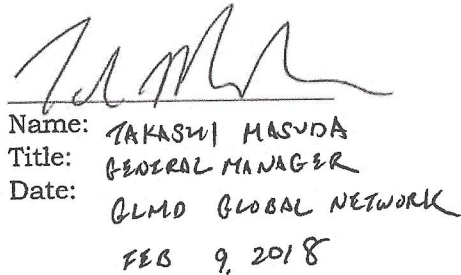 Name: TAKASHI MASUDA
Title: GENERAL MANAGER
Date:
GLMD GLOBAL NETWORK
FEB 9, 2018